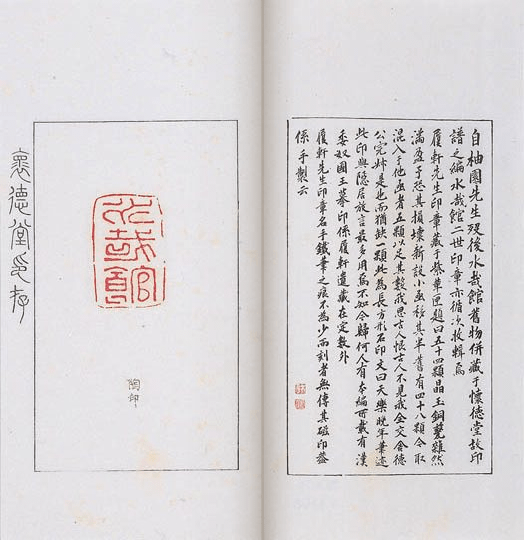 自柚園先生歿後水哉館舊物併藏于懷德堂故印
譜之編水哉館二世印章亦循次收輯焉
履軒先生印章藏于紫革匣題曰五十四顆晶玉銅甆雜然
滿盈予恐其損壞新設小函移其半舊有四十八顆今取
混入于他函者五顆以足其數我思古人恨古人不見我金交會德
公完姉是也而猶缺一顆此為長方形石印文曰天樂晚年筆迹
此印與隱居放言最多用焉不知今歸何人有本編所載有漢
委奴國王摹印係履軒遺藏在定數外
履軒先生印章名手鐵筆之痕不為少而刻者無傳其磁印蓋
係手製云
水哉館
陶印
褱德堂印存